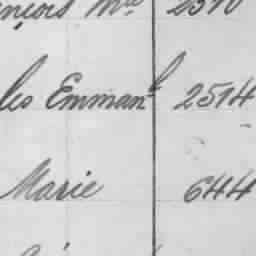 nçois Mie 2510
les Emmanl 2514
Marie 644